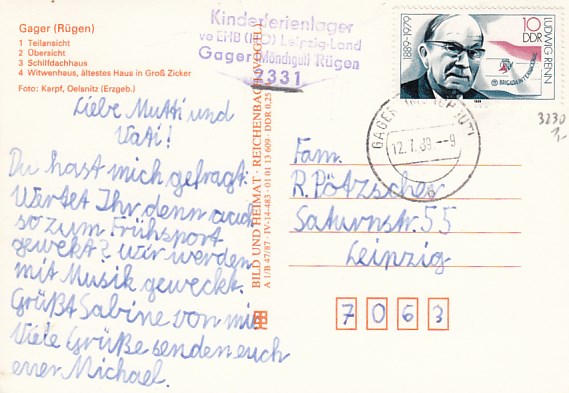 Gager (Rügen)
1 Teilansicht
2 Übersicht
3 Schilfdachhaus
4 Witwenhaus, ältestes Haus in Groß Zicker
Foto: Karpf, Oelsnitz (Erzgeb.)
Kinderferienlager
ve EHB (HO) Leipzig-Land
Gager (Mönchgut) Rügen
2331
1889-1979
10
DDR
LUDWIG RENN
BRIGADA INTERNACIONAL
GAGER
12.7.89 --9
3230
1,-
Liebe Mutti und
Vati!
Du hast mich gefragt:
Wertet Ihr denn auch
so zum Frühsport
gewekt? wir werden
mit Musik geweckt.
Grüßt Sabine von mir
Viele Grüße senden euch
euer Michael.
BILD UND HEIMAT · REICHENBACH (VOGTL)
A 1/B 47/87 · IV-14-483 · 01 01 13 609 · DDR 0,25
Fam.
R. Pötzscher
Saturnstr. 55
Leipzig
7063